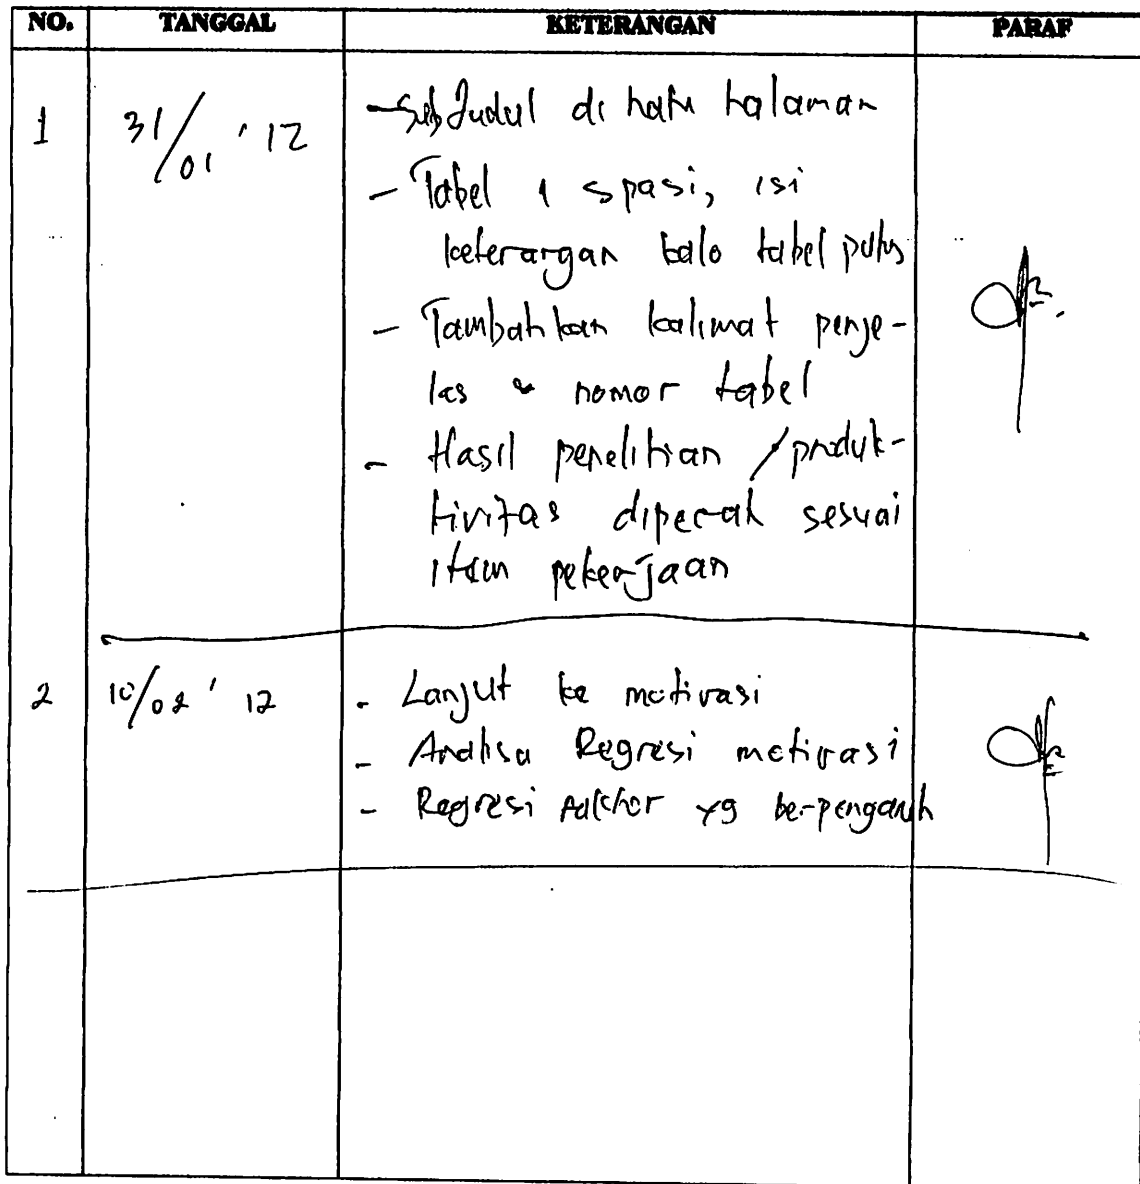 NO. TANGGAL KETERANGAN PARAF
1 31/01 '12 - Sub Judul di halaman
- Tabel 1 spasi, isi
keterangan kalo tabel putus
- Tambahkan kalimat penje-
las & nomor tabel
- Hasil penelitian / produk-
tivitas dipecah sesuai
item pekerjaan
2 10/02 '12 - Lanjut ke motivasi
- Analisa Regresi motivasi
- Regresi yg ber-pengaruh